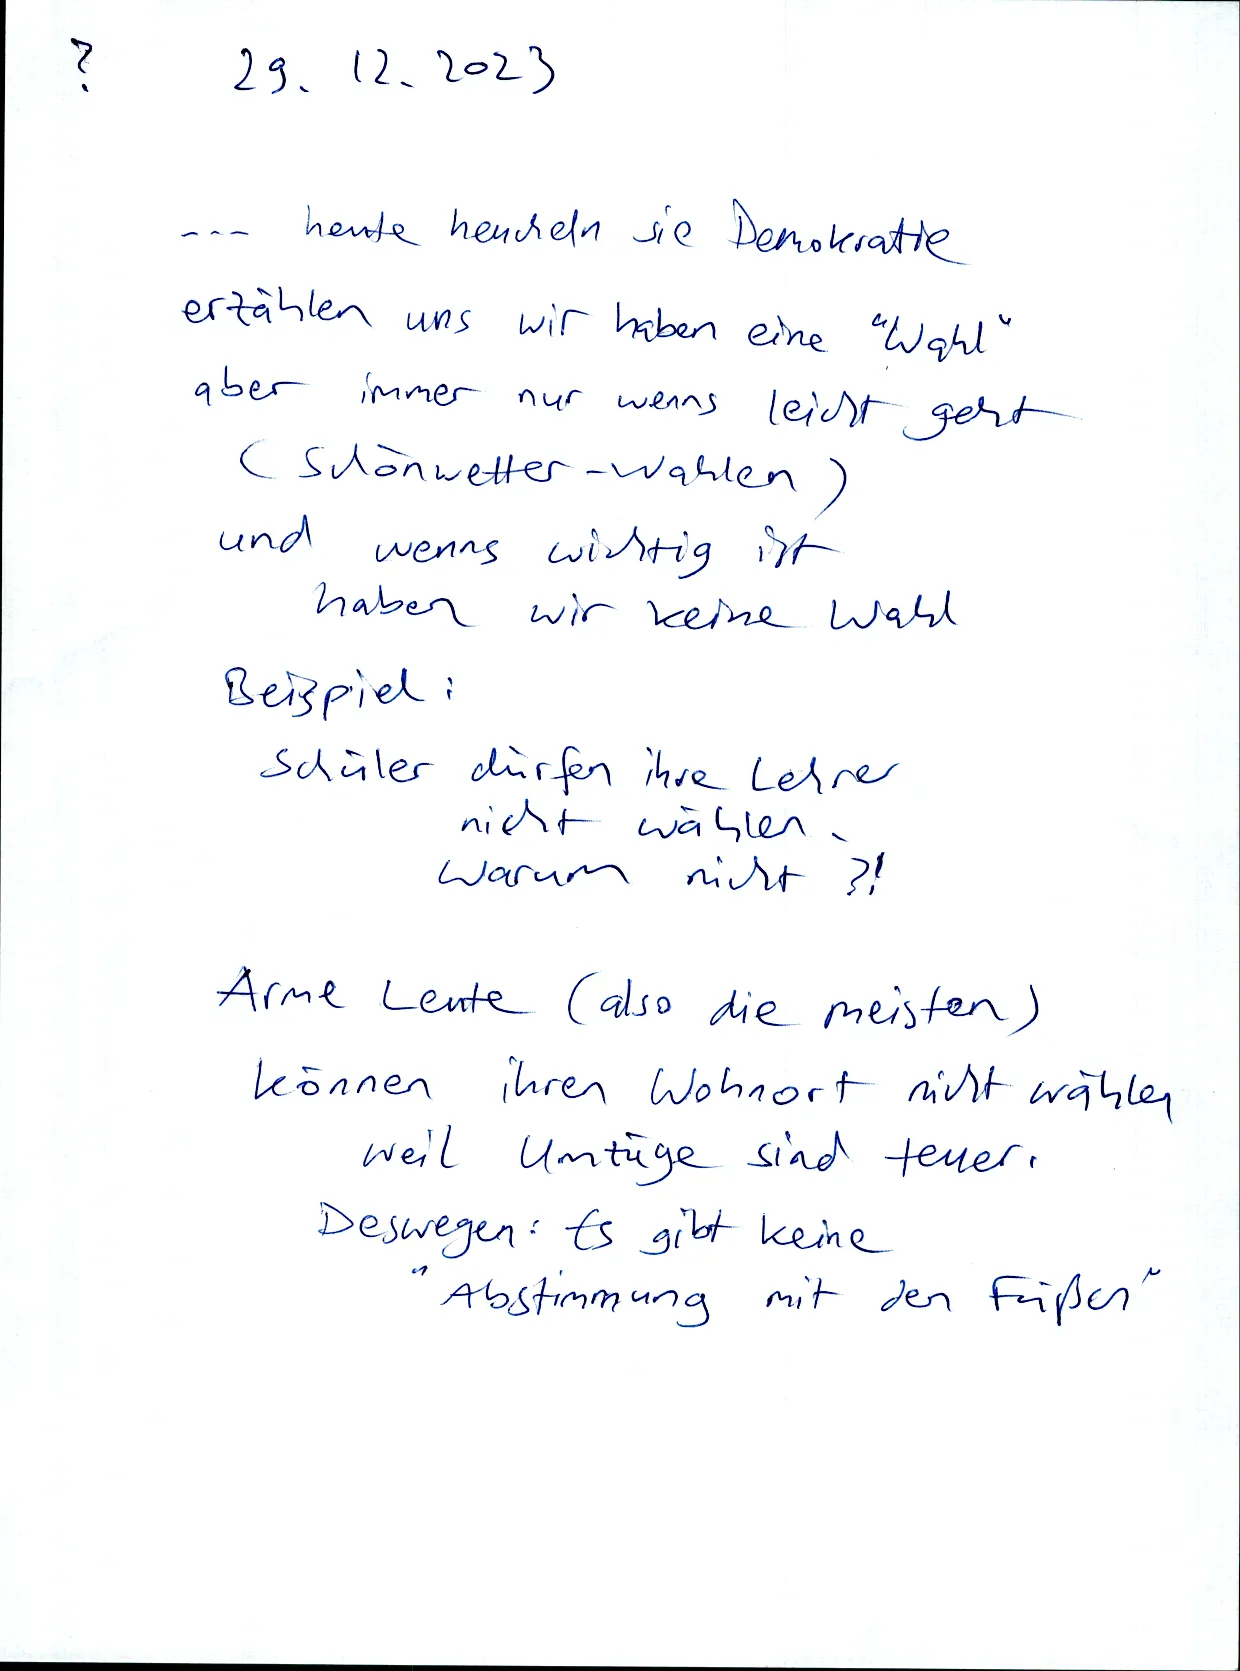 ? 29. 12. 2023
--- heute heucheln sie Demokratie
erzählen uns wir haben eine "Wahl"
aber immer nur wenns leicht geht
(Schönwetter-Wahlen)
und wenns wichtig ist
haben wir keine Wahl
Beispiel:
Schüler dürfen ihre Lehrer
nicht wählen.
Warum nicht ?!
Arme Leute (also die meisten)
können ihren Wohnort nicht wählen
weil Umzüge sind teuer.
Deswegen: Es gibt keine
"Abstimmung mit den Füßen"